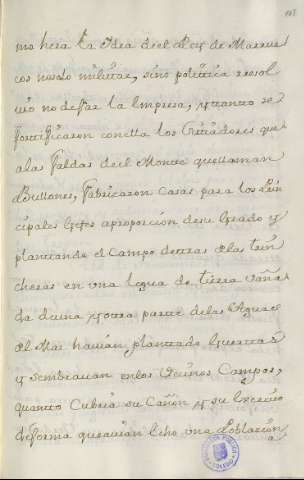 mo hera la Idea del Rey de Marrue
cos no solo militar, sino politica resol
vio no dejar la Impresa, y tanto se
fortificaron con ella los Sitiadores que
a las faldas del Monte que llaman
Bullones, fabricaron Casas para los Prin
cipales Gefes a proporcion de su Grado y
plantando el Campo detras de las trin
cheras en una legua de tierra vaña
da de una y otra parte de las Aguas
del Mar havian plantado Huertas
y sembravan en los Campos,
quanto Cubria su Cañon y su Exercito
de forma que havian hecho una Poblacion